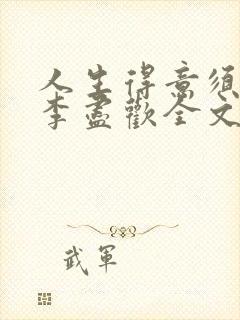 人生得意须
李盡歡全文
武軍